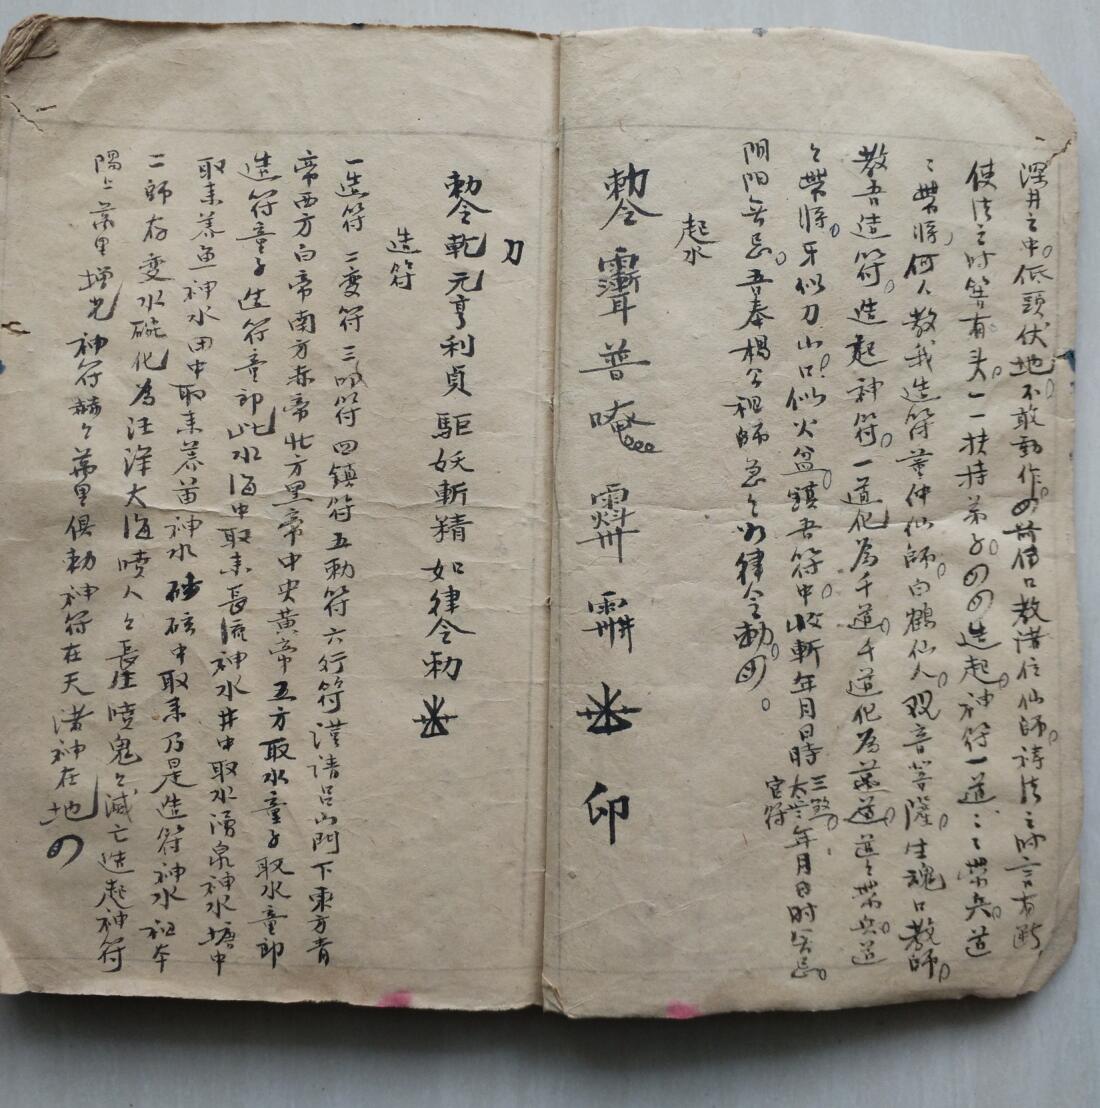 深井之中低頭伏地不敢動作
使法之时筶有头一一扶持弟子造起神符一道〻〻帶兵道
〻帶將何人教我造符董仲仙師白鶴仙人观音菩薩生魂口教師
教吾造符造起神符一道化為千道千道化為萬道道〻帶兵道
〻帶將牙似刀山口似火盆鎮吾符中收斬年月日時
三煞
官符
太歲年月日时无忌
阴阳无忌吾奉楊公祖師急〻如律令勅
起水
勅令
普唵
印
刀
勅令乾元亨利貞驅妖斬精如律令勅
造符
一造符二变符三符四鎮符五勅符六行符謹請吕山門下東方青
帝西方白帝南方赤帝北方黑帝中央黄帝五方取水童子取水童郎
造符童子造符童郎此水海中取来長流神水井中取水湧泉神水塘中
取来养魚神水田中取来养苗神水中取来乃是造符神水祖本
二師存变水碗化為汪洋大海噴人〻長生噴鬼〻滅亡造起神符
陽上萬里增光神符赫〻萬里俱勅神符在天諸神在地